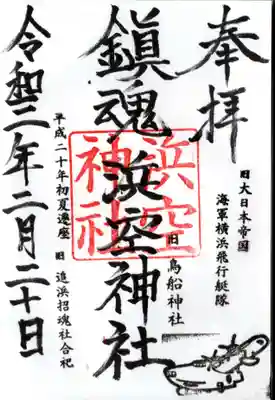 奉拝
旧大日本帝国
海軍横浜飛行艇隊
鎮魂浜空神社
旧鳥船神社
浜空
神社
平成二十年初夏遷座
旧追浜招魂社合祀
令和三年二月二十日